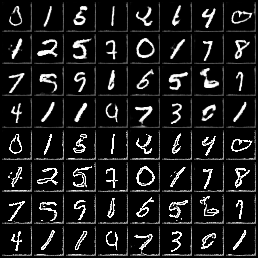 0 1 5 1 2 1 4 0
1 2 5 7 0 1 7 8
7 5 9 1 6 5 6 1
4 1 1 9 7 3 0 1
0 1 5 1 2 1 4 0
1 2 5 7 0 1 7 8
7 5 9 1 6 5 6 1
4 1 1 9 7 3 0 1